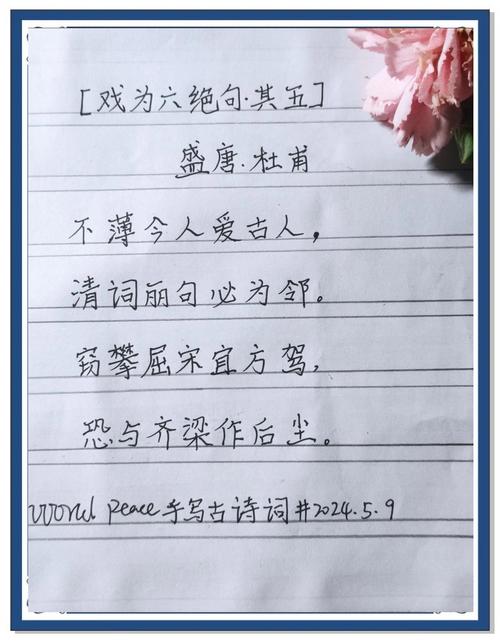 [戏为六绝句·其五]
盛唐·杜甫
不薄今人爱古人，
清词丽句必为邻。
窃攀屈宋宜方驾，
恐与齐梁作后尘。
World Peace手写古诗词#2024.5.9